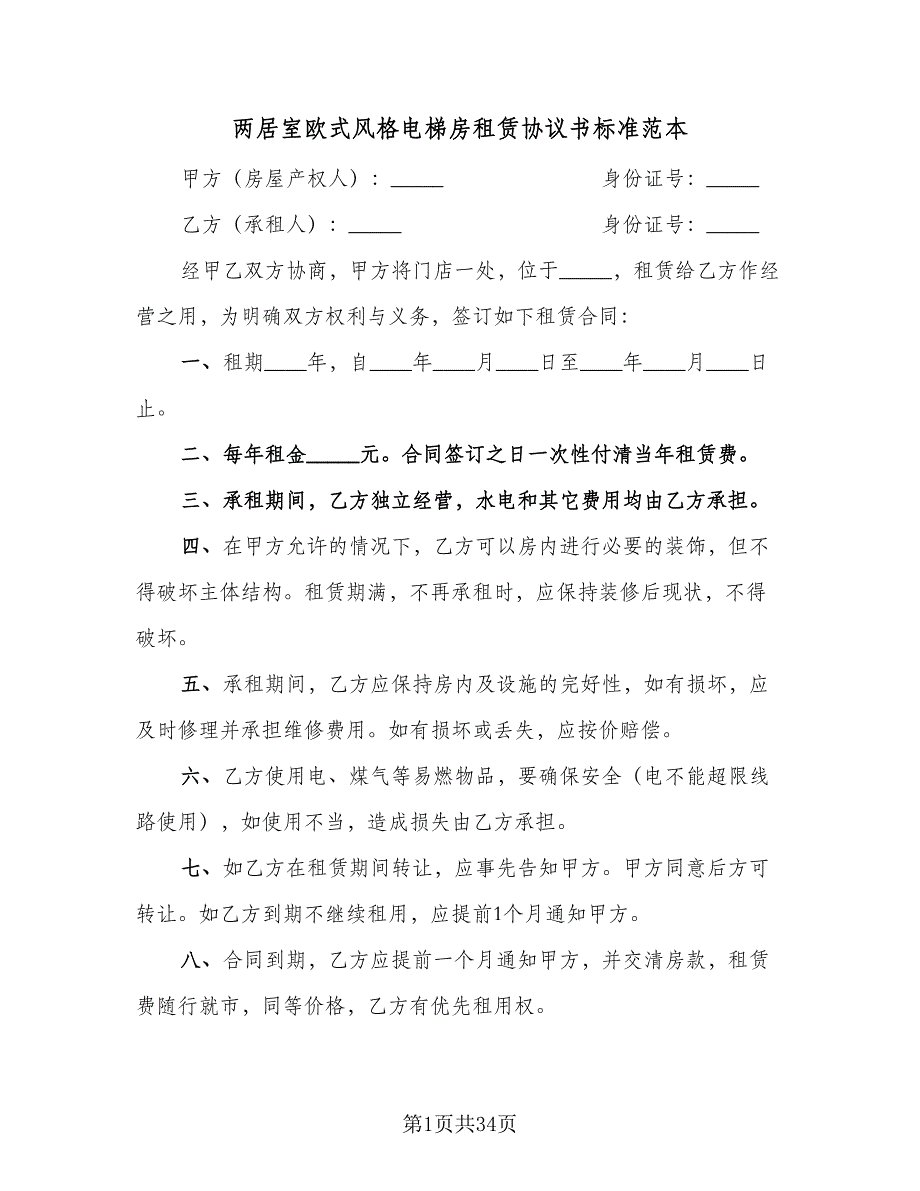 两居室欧式风格电梯房租赁协议书标准范本
甲方（房屋产权人）：_____ 身份证号：_____
乙方（承租人）：_____ 身份证号：_____
经甲乙双方协商，甲方将门店一处，位于_____，租赁给乙方作经
营之用，为明确双方权利与义务，签订如下租赁合同：
一、租期____年，自____年____月____日至____年____月____日
止。
二、每年租金_____元。合同签订之日一次性付清当年租赁费。
三、承租期间，乙方独立经营，水电和其它费用均由乙方承担。
四、在甲方允许的情况下，乙方可以房内进行必要的装饰，但不
得破坏主体结构。租赁期满，不再承租时，应保持装修后现状，不得
破坏。
五、承租期间，乙方应保持房内及设施的完好性，如有损坏，应
及时修理并承担维修费用。如有损坏或丢失，应按价赔偿。
六、乙方使用电、煤气等易燃物品，要确保安全（电不能超限线
路使用），如使用不当，造成损失由乙方承担。
七、如乙方在租赁期间转让，应事先告知甲方。甲方同意后方可
转让。如乙方到期不继续租用，应提前1个月通知甲方。
八、合同到期，乙方应提前一个月通知甲方，并交清房款，租赁
费随行就市，同等价格，乙方有优先租用权。
第1页共34页